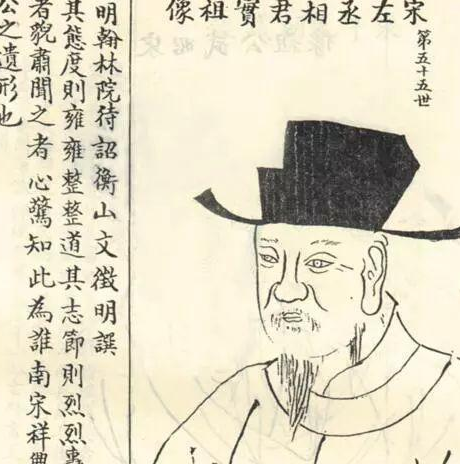 宋左丞相君實祖像
第五十五世
明翰林院待詔衡山文徵明譔
其態度則雍雍整整道其志節則烈烈轟
者貌肅聞之者心驚知此為誰南宋祥興
公之遺形也